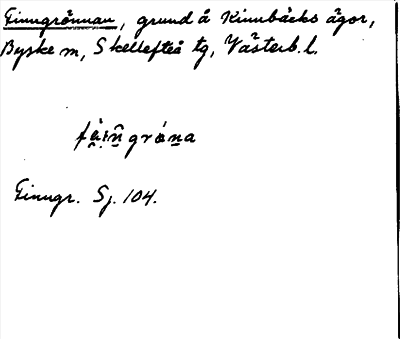 Finngrönnan, grund å Kinnbäcks ägor,
Byske sn, Skellefteå tg, Västerb. l.
Finngr. Sj. 104.